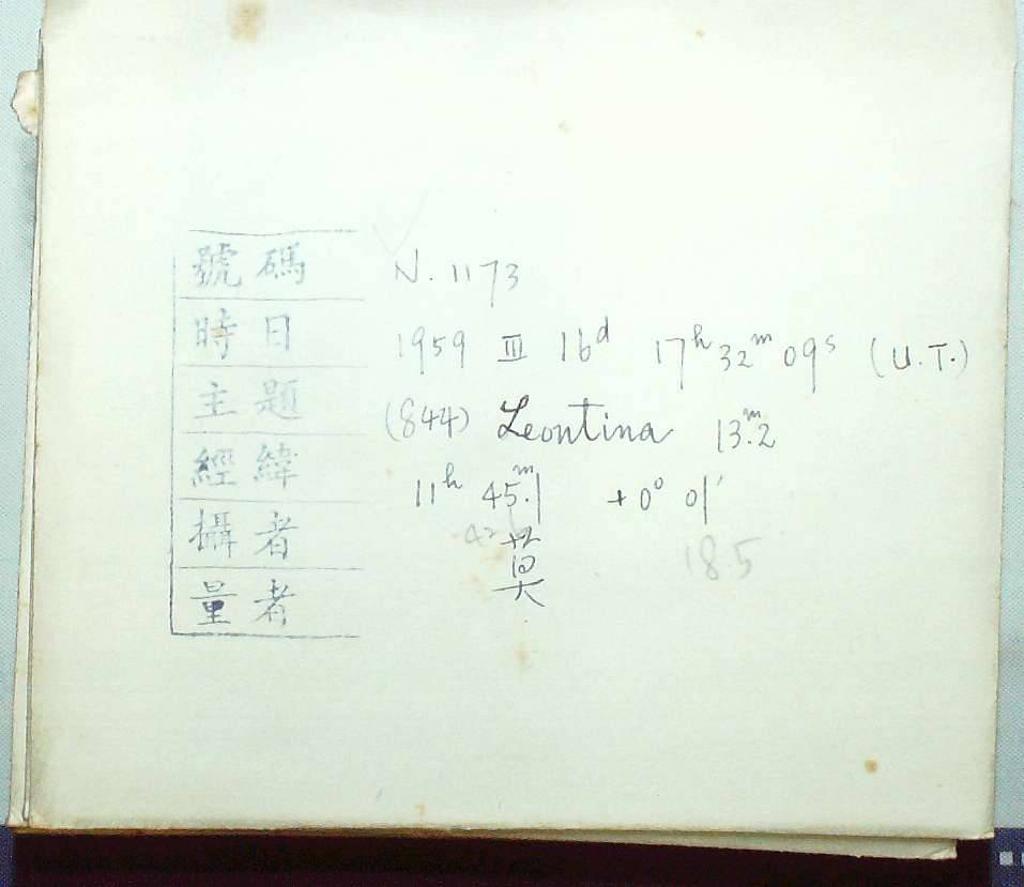 號碼 N. 1173
時日 1959 III 16d 17h 32m 09s (U.T.)
主題 (844) Leontina 13m.2
經緯 11h 45m.1 +0° 01′
攝者 莫
量者
18.5